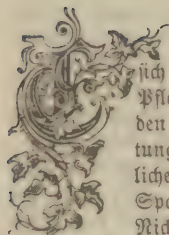 sich
Pfle
den
tung
liche
Spo
Nich